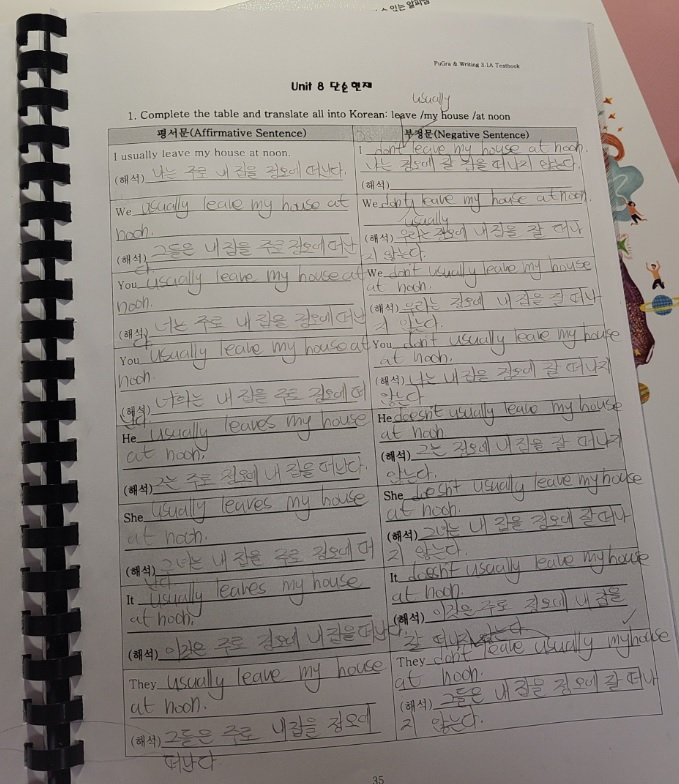 ㅅ 있는 알파남
PoGra & Writing 3.1A Textbook
Unit 8 단순현재
usually
1. Complete the table and translate all into Korean: leave /my house /at noon
평서문(Affirmative Sentence)
I usually leave my house at noon.
(해석) 나는 주로 내 집을 정오에 떠난다.
We usually leave my house at
noon.
(해석) 그들은 내 집을 주로 정오에 떠난
다
You usually leave my house at
noon.
(해석) 너는 주로 내 집을 정오에 떠난
다
You usually leave my house at
noon.
(해석) 너희는 내 집을 주로 정오에 떠
난다
He usually leaves my house
at noon.
(해석) 그는 주로 정오에 내 집을 떠난다.
She usually leaves my house
at noon.
(해석) 그녀는 내 집을 주로 정오에 떠
난다
It usually leaves my house
at noon.
(해석) 이것은 주로 정오에 내 집을 떠난다.
They usually leave my house
at noon.
(해석) 그들은 주로 내 집을 정오에
떠난다
부정문(Negative Sentence)
I don't leave my house at noon.
나는 정오에 잘 집을 떠나지 않는다.
(해석)
We don't leave my house at noon.
usually
(해석) 우리는 정오에 내 집을 잘 떠나
지 않는다.
We don't usually leave my house
at noon.
(해석) 우리는 정오에 내 집을 잘 떠나
지 않는다.
You don't usually leave my house
at noon.
(해석) 너는 내 집을 정오에 잘 떠나지
않는다
He doesn't usually leave my house
at noon
(해석) 그는 정오에 내 집을 잘 떠나지
않는다.
She doesn't usually leave my house
at noon.
(해석) 그녀는 내 집을 정오에 잘 떠나
지 않는다.
It doesn't usually leave my house
at noon.
(해석) 이것은 주로 정오에 내 집을
잘 떠나지 않는다.
They don't leave usually my house
at noon.
(해석) 그들은 내 집을 정오에 잘 떠나
지 않는다.
35